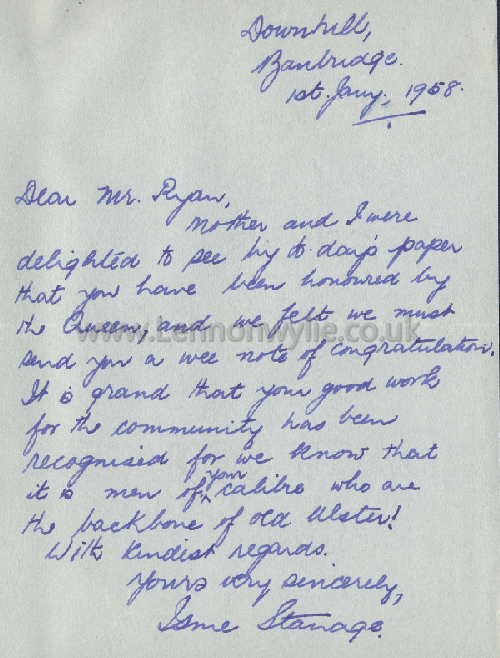 Downhill,
Banbridge.
1st. Jany., 1958.
Dear Mr. Ryan,
Mother and I were
delighted to see by to-day's paper
that you have been honoured by
the Queen, and we felt we must
send you a wee note of congratulation.
www.Lennonwylie.co.uk
It is grand that your good work
for the community has been
recognised for we know that
it is men of your calibre who are
the backbone of old Ulster!
With kindest regards.
Yours very sincerely,
Isme Stanage.